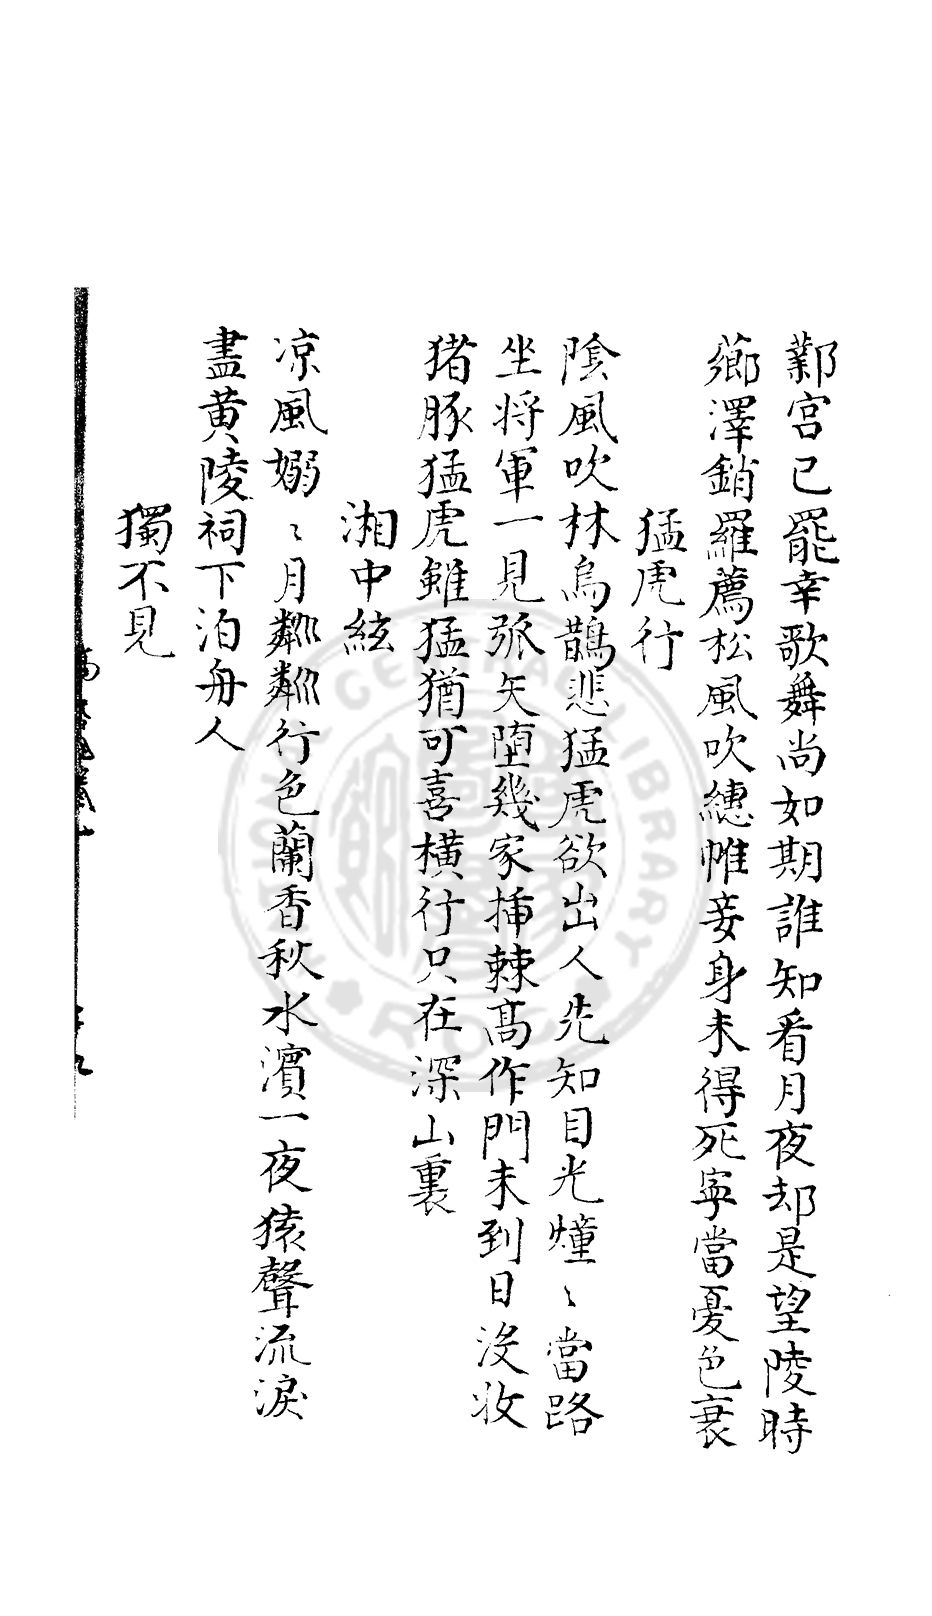 鄴宫已罷幸歌舞尚如期誰知看月夜却是望陵時
薌澤銷羅薦松風吹繐帷妾身未得死寧當憂色衰
猛虎行
陰風吹林烏鵲悲猛虎欲出人先知目光爞〻當路
坐将軍一見弤矢墮幾家揷棘髙作門未到日没收
猪豚猛虎雖猛猶可喜横行只在深山裏
湘中絃
凉風嫋〻月粼粼行色蘭香秋水濱一夜猿聲流淚
盡黄陵祠下泊舟人
獨不見
NATIONAL CENTRAL LIBRARY R.O.C